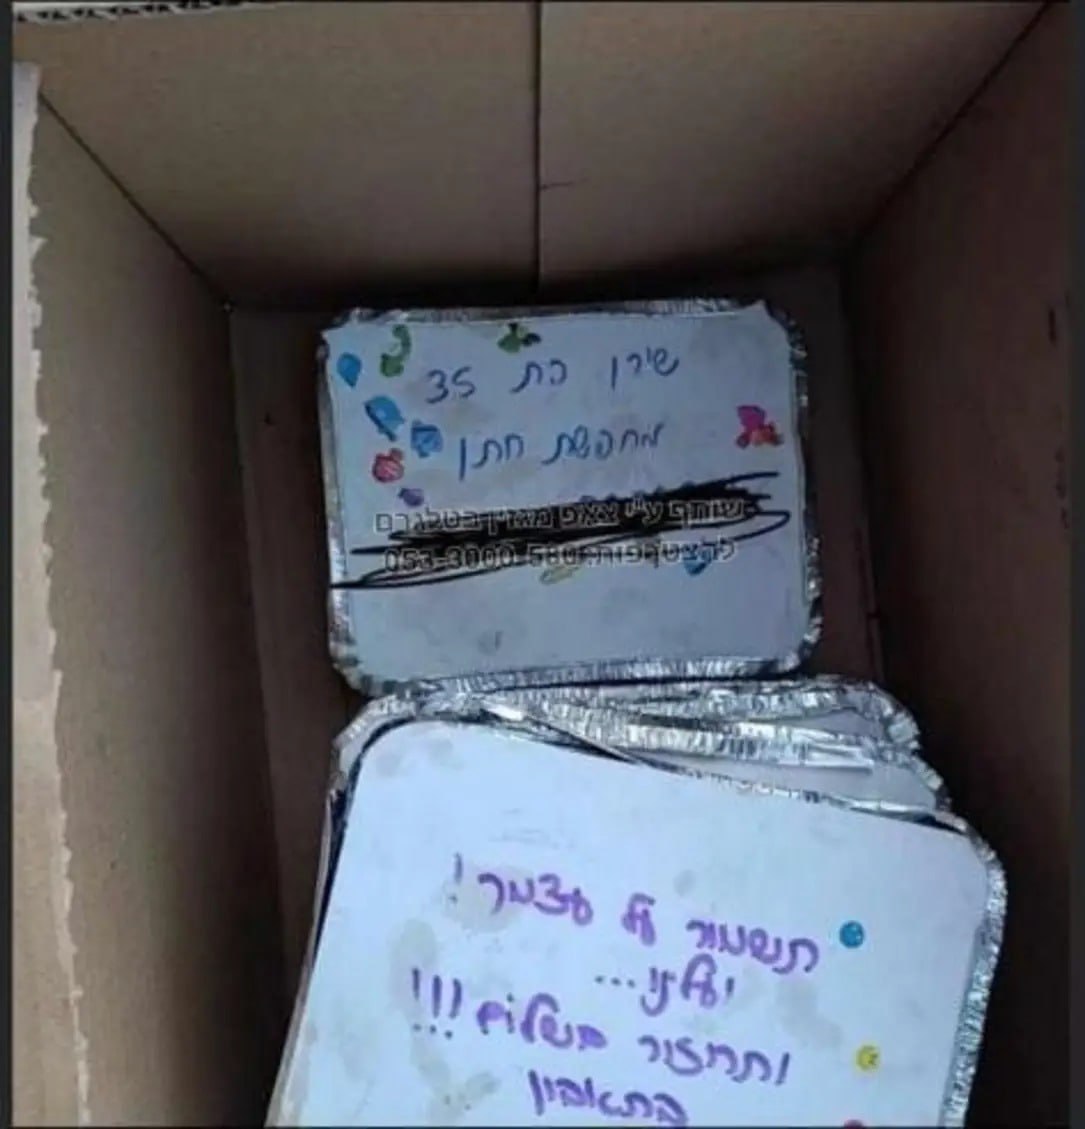 שירן בת 35
מחפשת חתן
שותף ע"י צאפ מגזין בטלגרם
להצטרפות: 053-3000-580
תשמור על עצמך!
ועלינו...
ותחזור בשלום!!!
בתאבון